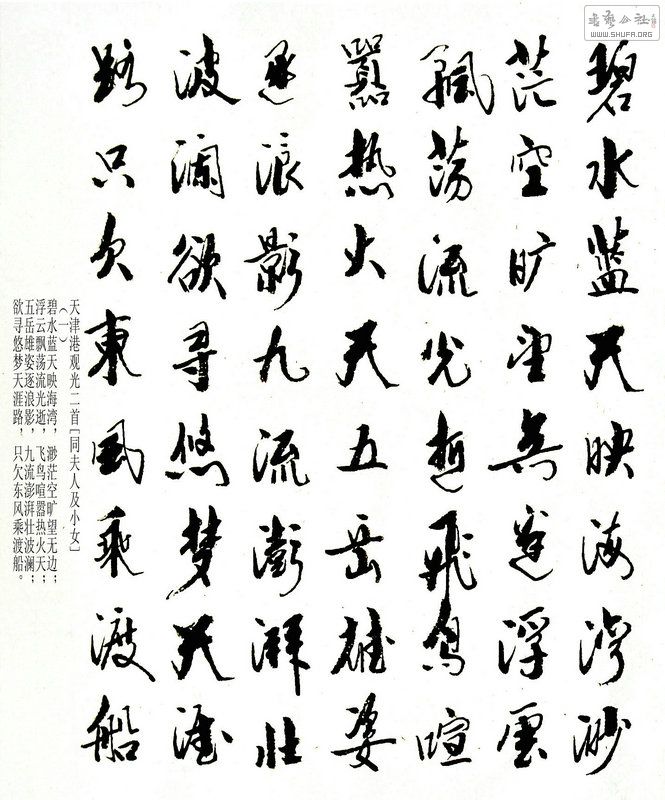 书艺公社
WWW.SHUFA.ORG
碧水蓝天映海湾渺
茫空旷望無邊浮雲
飘荡流光逝飛鳥喧
嚣热火天五岳雄姿
逐浪影九流澎湃壮
波澜欲寻悠梦天涯
路只欠東風乘渡船
天津港观光二首[同夫人及小女]
(一)
碧水蓝天映海湾，渺茫空旷望无边；
浮云飘荡流光逝，飞鸟喧嚣热火天；
五岳雄姿逐浪影，九流澎湃壮波澜；
欲寻悠梦天涯路，只欠东风乘渡船。